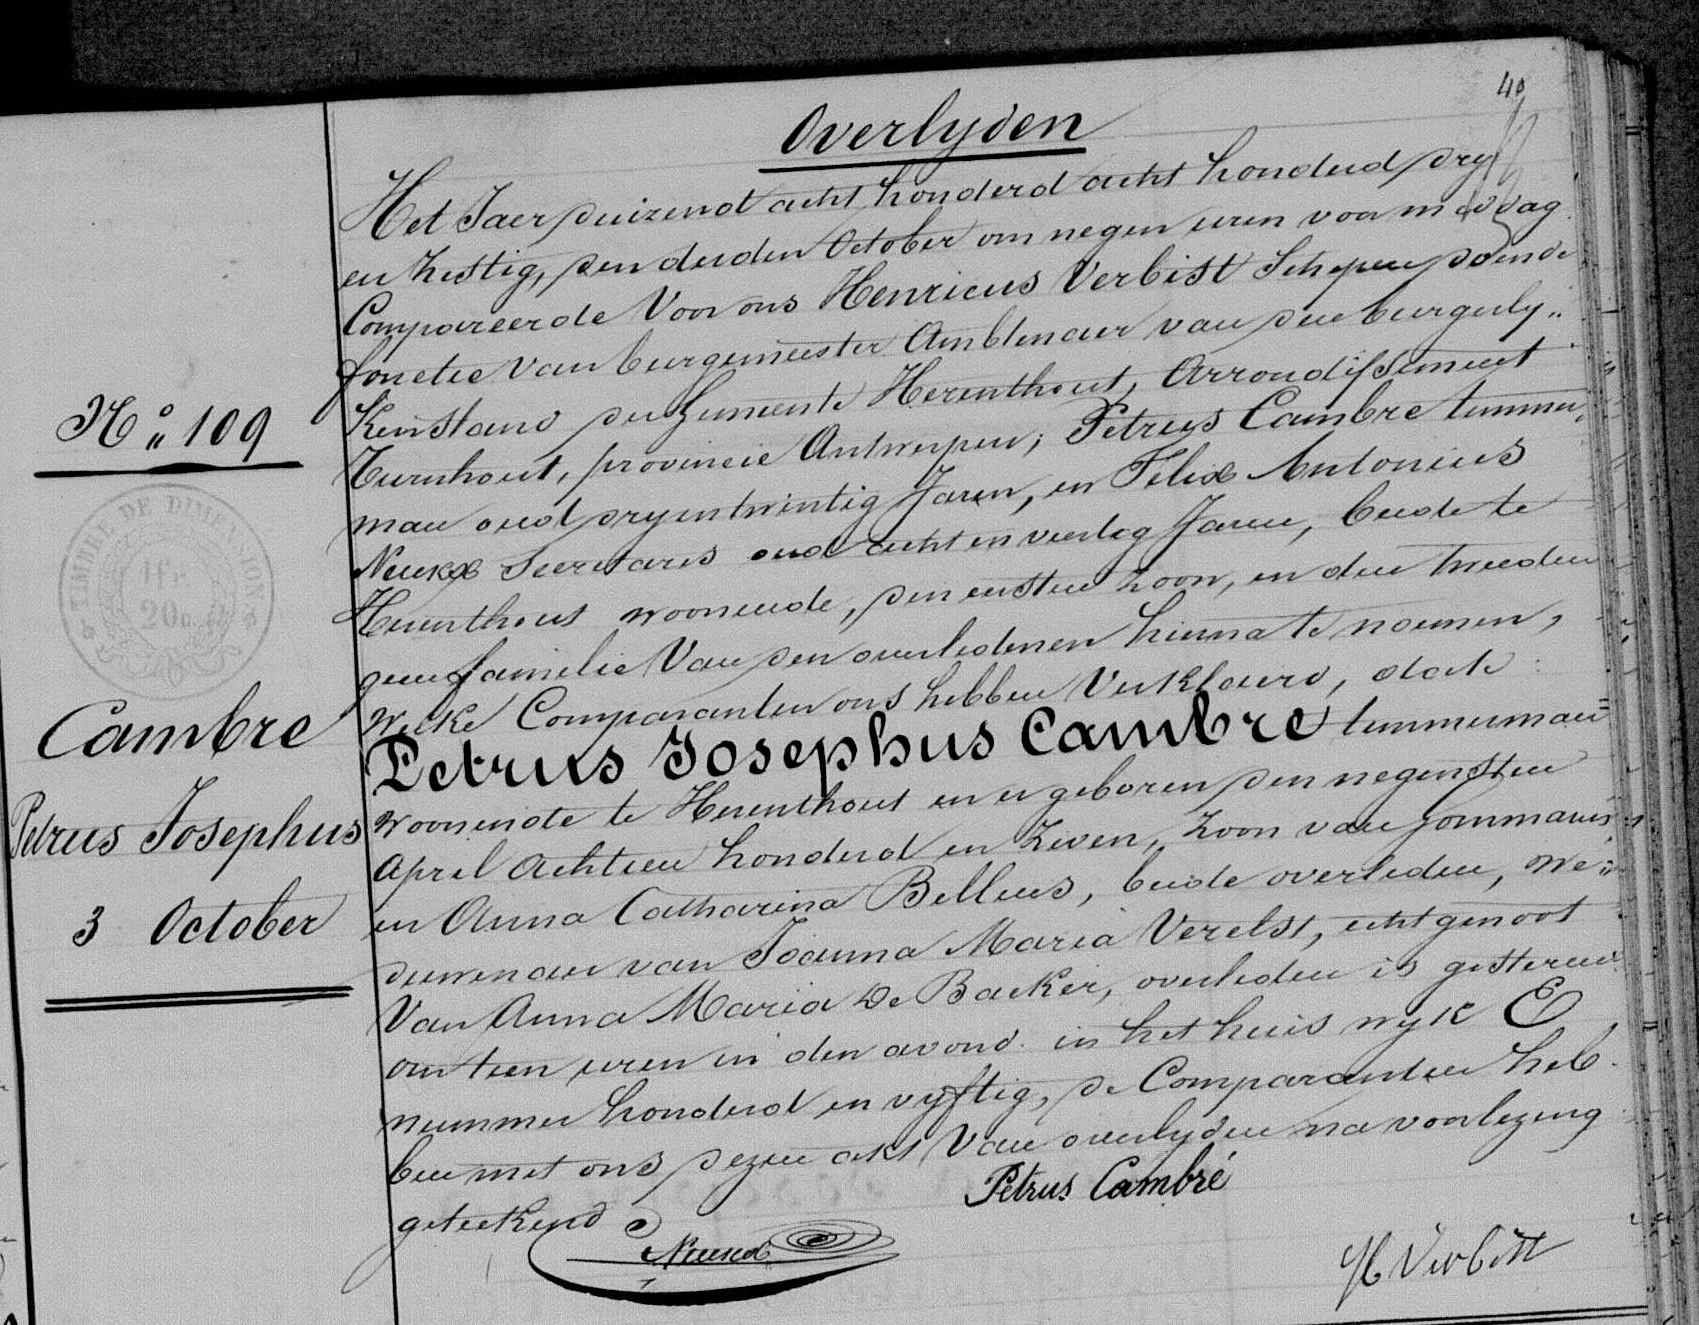 40
Overlyden
Het Jaer duizend acht honderd acht honderd dry
en zestig, den derden October om negen uren voor middag
Compareerde Voor ons Henricus Verbist Schepen doende
fonctie van burgemeester Ambtenaer van den burgerly„
ken stand der gemeente Herenthout, Arrondissement
Turnhout, provincie Antwerpen; Petrus Cambre timmer„
man oud dryentwintig Jaren, en Felix Antonius
Neukx Secretaris oud achtenveertig Jaren, beide te
Herenthout woonende, den eersten zoon, en den tweeden
geen familie Van den overledenen hierna te noemen,
Welke Comparanten ons hebben Verklaerd, dat
Petrus Josephus Cambre timmerman
woonende te Herenthout en er geboren den negensten
April achtien honderd en zeven, zoon van Gommarus
en Anna Catharina Bellens, beide overleden, we„
duwenaer van Joanna Maria Verelst, echtgenoot
Van Anna Maria De Backer, overleden is gisteren
om tien uren in den avond in het huis wyk E
nummer honderd en vyftig, de Comparanten heb„
ben met ons dezen akt Van overlyden na voorlezing
geteekend
Petrus Cambré
H Verbist
N° 109
TIMBRE DE DIMENSION
1 fr
20c
Cambre
Petrus Josephus
3 October